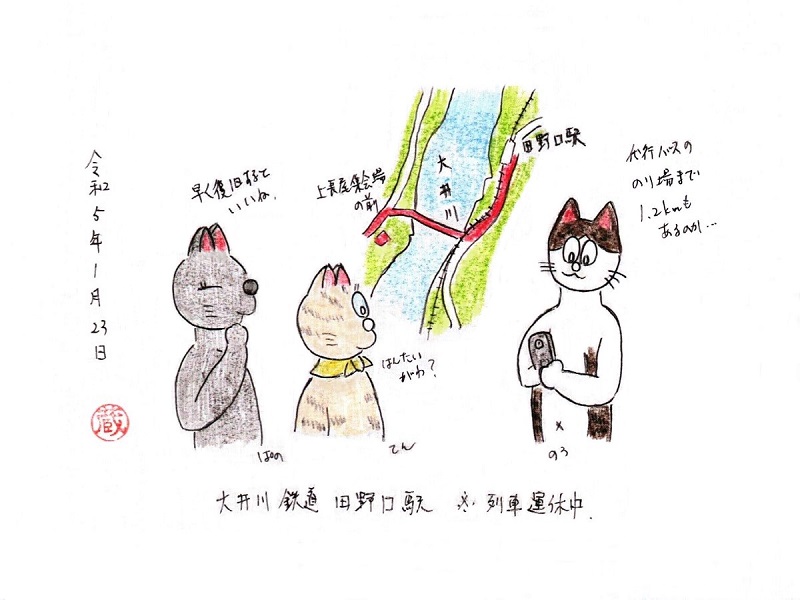 令和5年1月23日
早く復旧すると
いいね。
上長尾集会場
の前
大井川
田野口駅
代行バスの
のり場まで
1.2kmも
あるのか…
はんたい
がわ?
ぱの
てん
のろ
蔵
大井川鉄道 田野口駅 ※列車運休中.